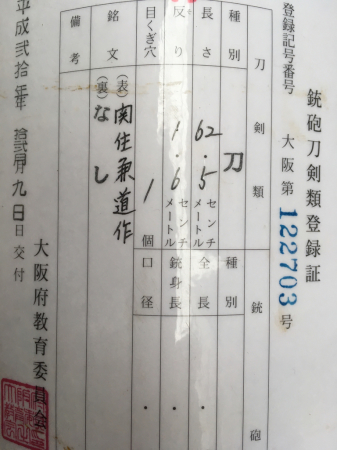 銃砲刀剣類登録証
登録記号番号 大阪第122703号
刀剣類 銃砲
種別 刀 種別
長さ 62.5 センチメートル 全長 ・
反り 1.6 センチメートル 銃身長 ・
目くぎ穴 1 個 口径 ・
銘文 (表) 関住兼道作
(裏) なし
備考
平成弐拾年 拾弐月九日交付
大阪府教育委員会